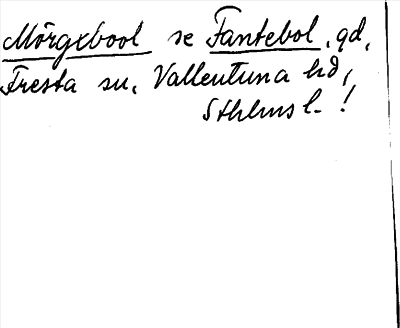 Mörgebool se Fantebol, gd,
Fresta sn, Vallentuna hd,
Sthlms l. !